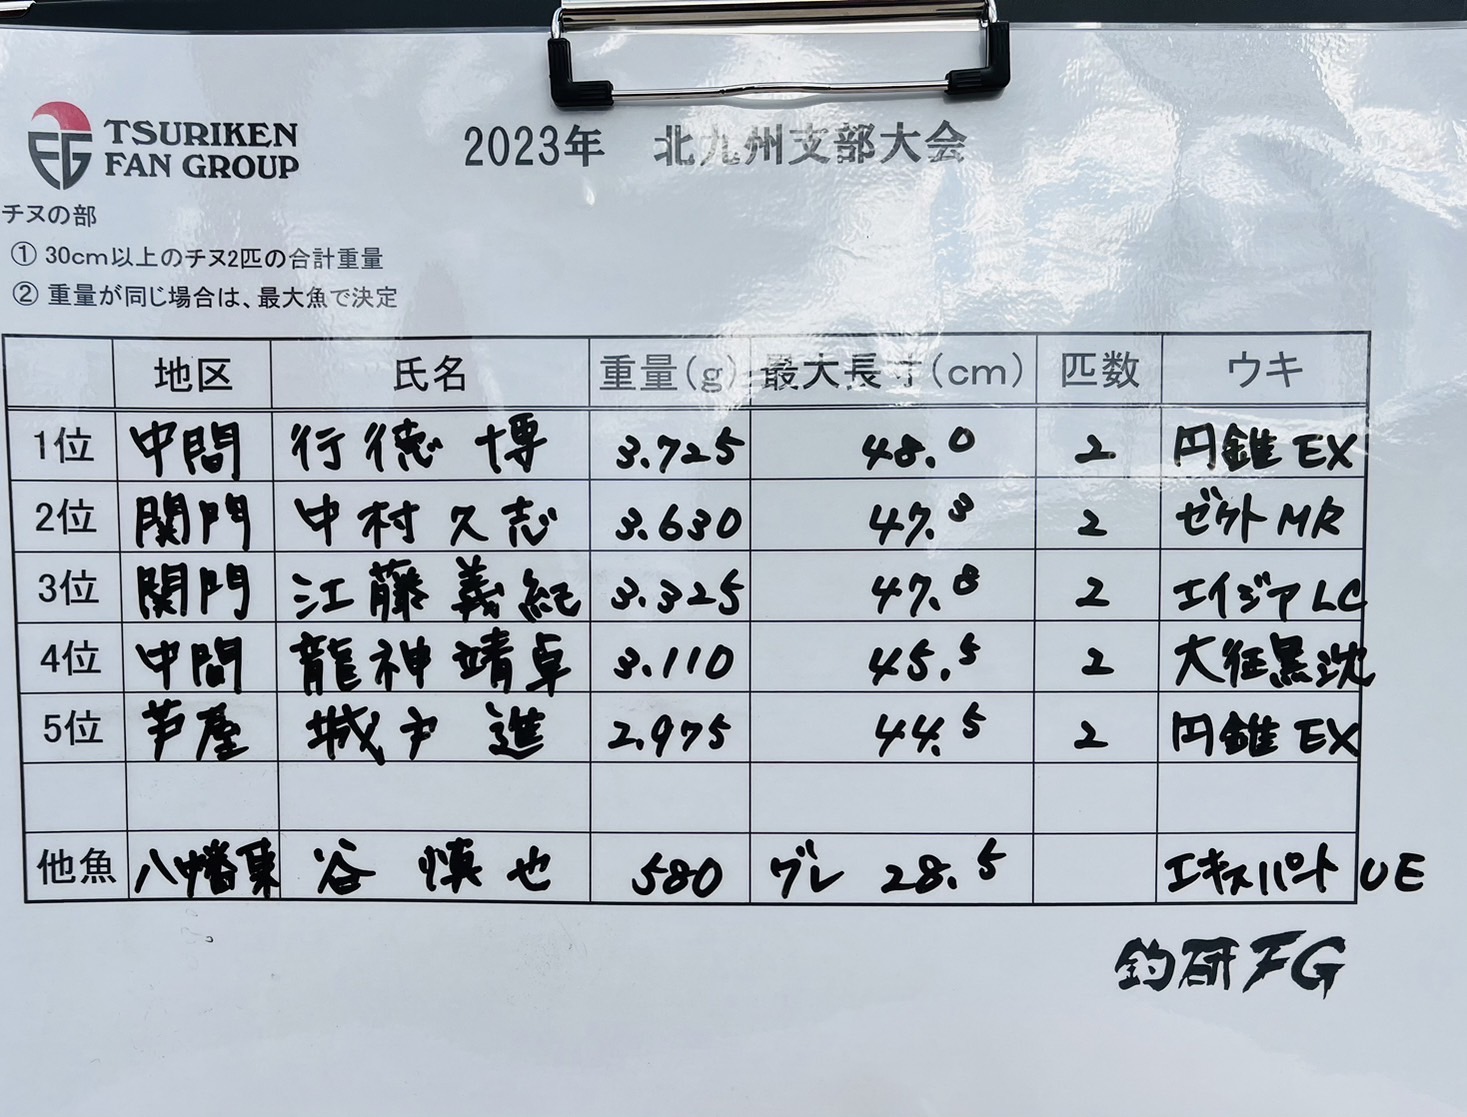 TSURIKEN
FAN GROUP
2023年 北九州支部大会
チヌの部
① 30cm以上のチヌ2匹の合計重量
② 重量が同じ場合は、最大魚で決定
地区 氏名 重量(g) 最大長寸(cm) 匹数 ウキ
1位 中間 行徳 博 3.725 48.0 2 円錐 EX
2位 関門 中村 久志 3.630 47.3 2 ゼクト MR
3位 関門 江藤 義紀 3.325 47.8 2 エイジア LC
4位 中間 龍神 靖卓 3.110 45.5 2 大征黒沈
5位 芦屋 城戸 進 2.975 44.5 2 円錐 EX
他魚 八幡東 谷 慎也 580 グレ 28.5 エキスパート UE
釣研FG